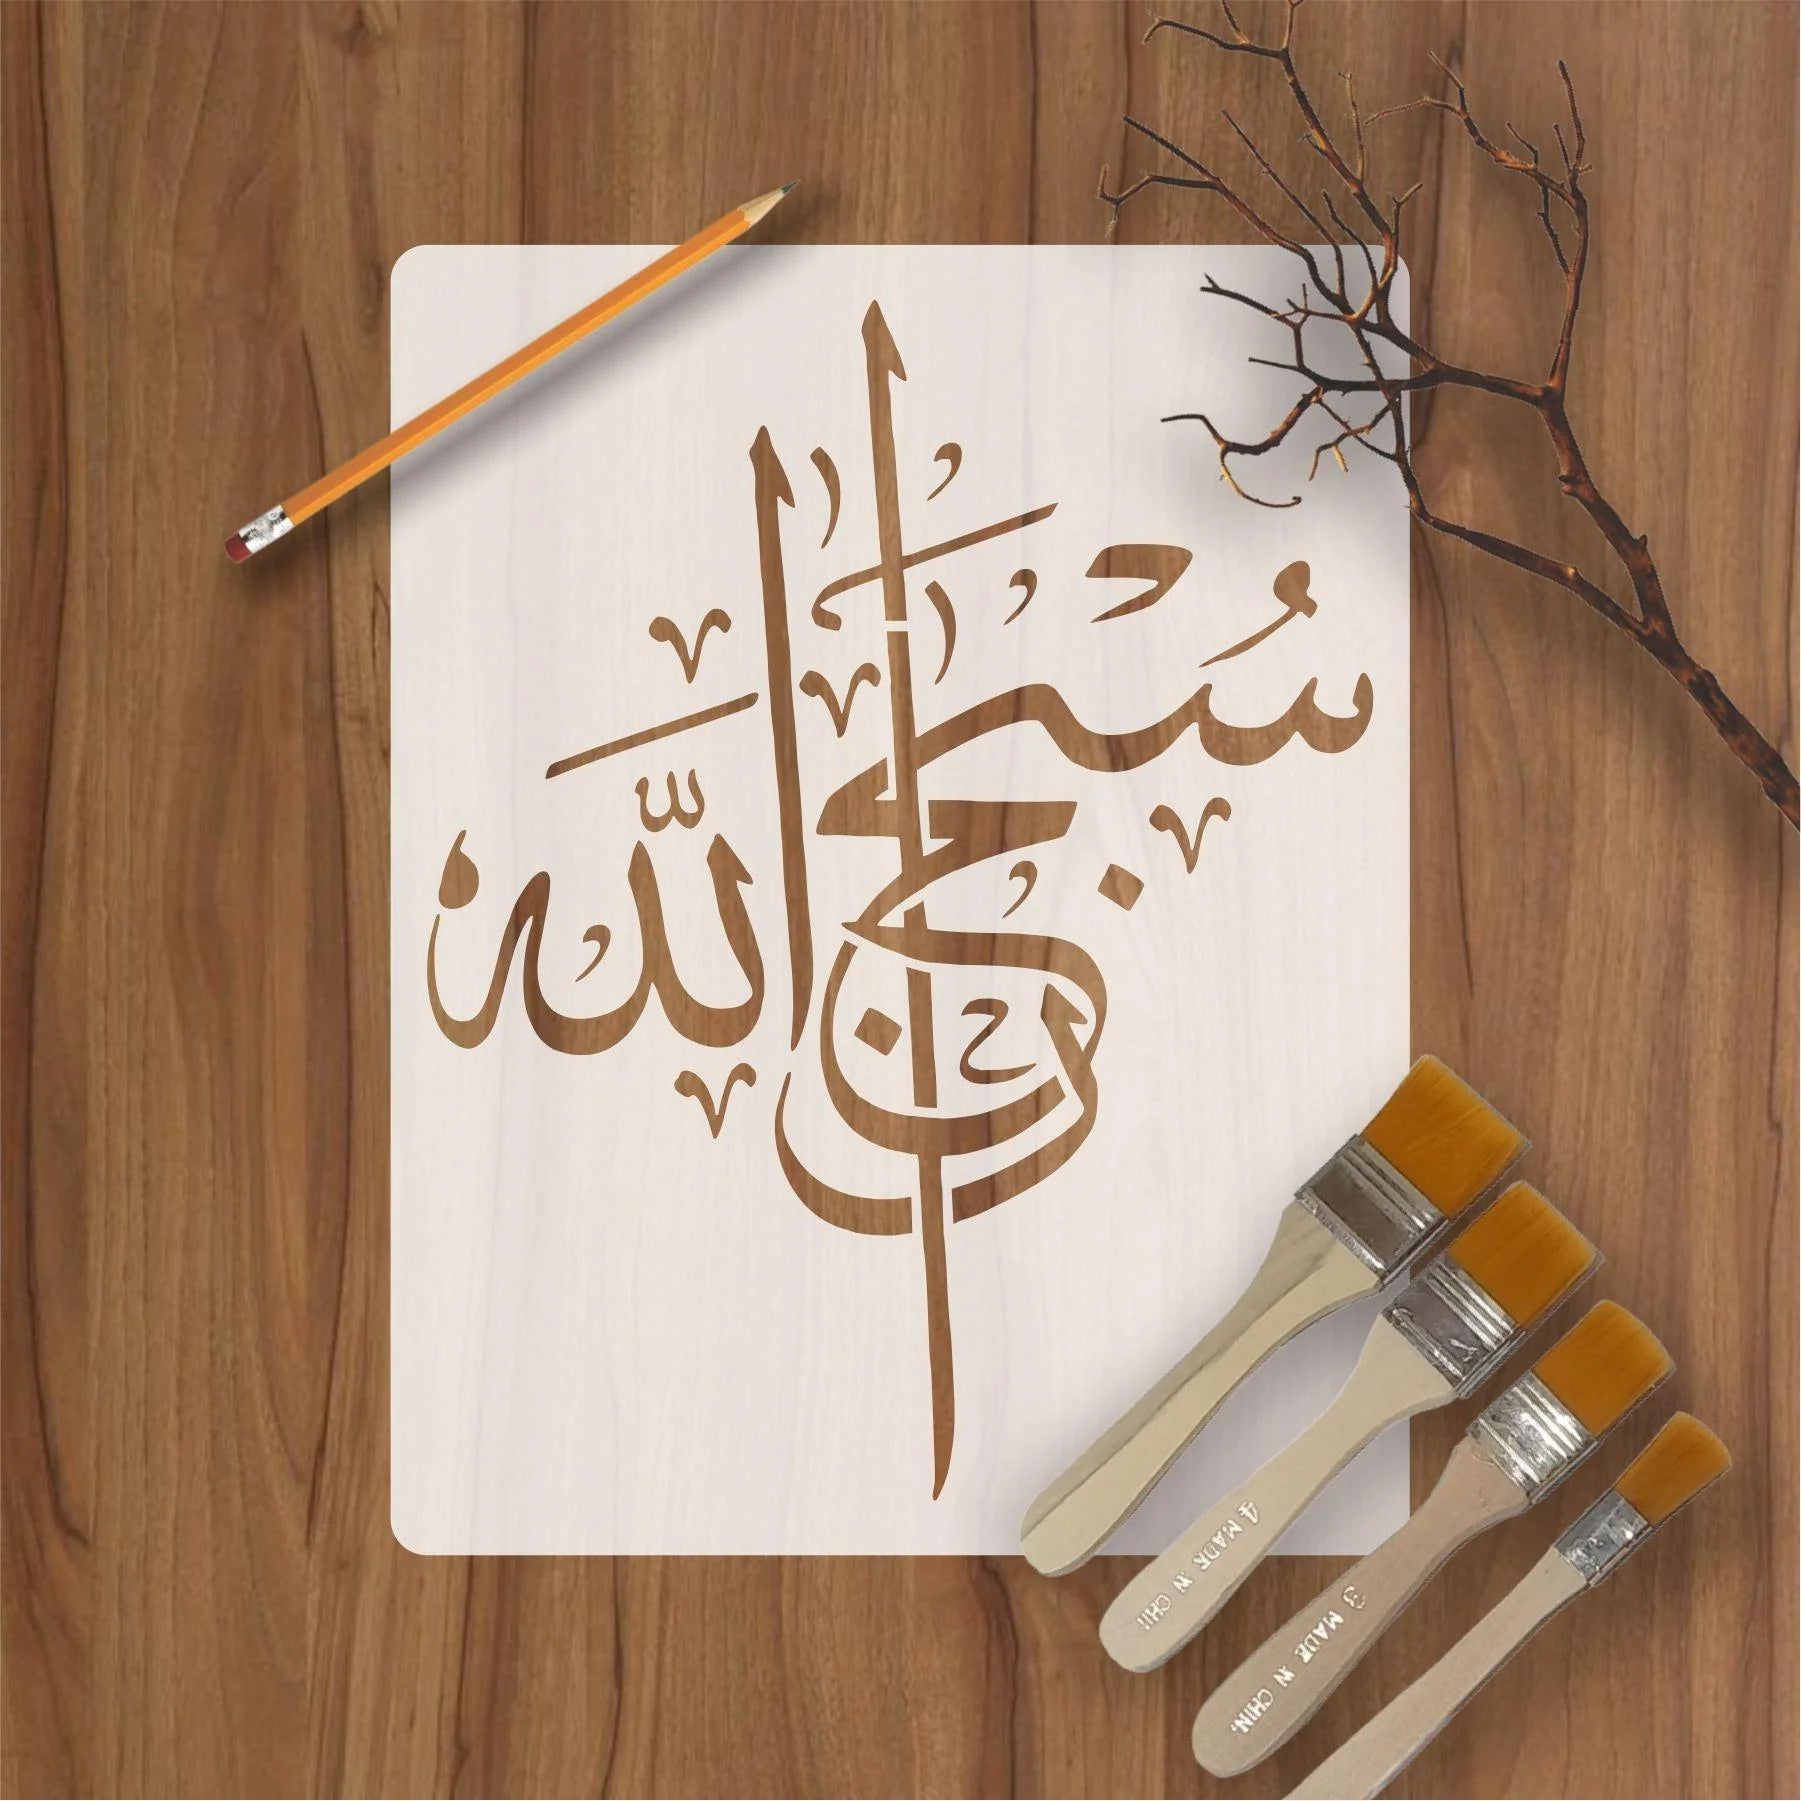 سُبْحَانَ اللّٰه
4 MADE IN CHIN
3 MADE IN CHIN.